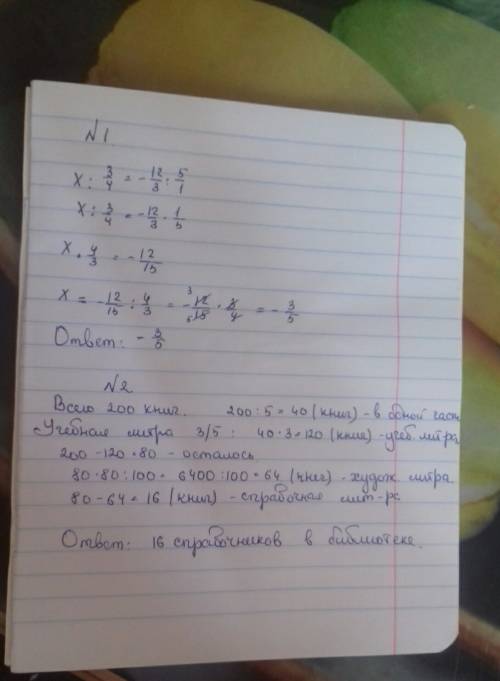 №1.
x : 3/4 = -12/3 : 5/1
x : 3/4 = -12/3 · 1/5
x · 4/3 = -12/15
x = -12/15 : 4/3 = -12/15 · 3/4 = -3/5
Ответ: -3/5
№2
Всего 200 книг. 200 : 5 = 40 (книг) - в одной част
Учебная литра 3/5 : 40 · 3 = 120 (книг) - учеб. литра
200 - 120 = 80 - осталось
80 · 80 : 100 = 6400 : 100 = 64 (книг) - худож литра
80 - 64 = 16 (книг) - справочная лит-ра
Ответ: 16 справочников в библиотеке.